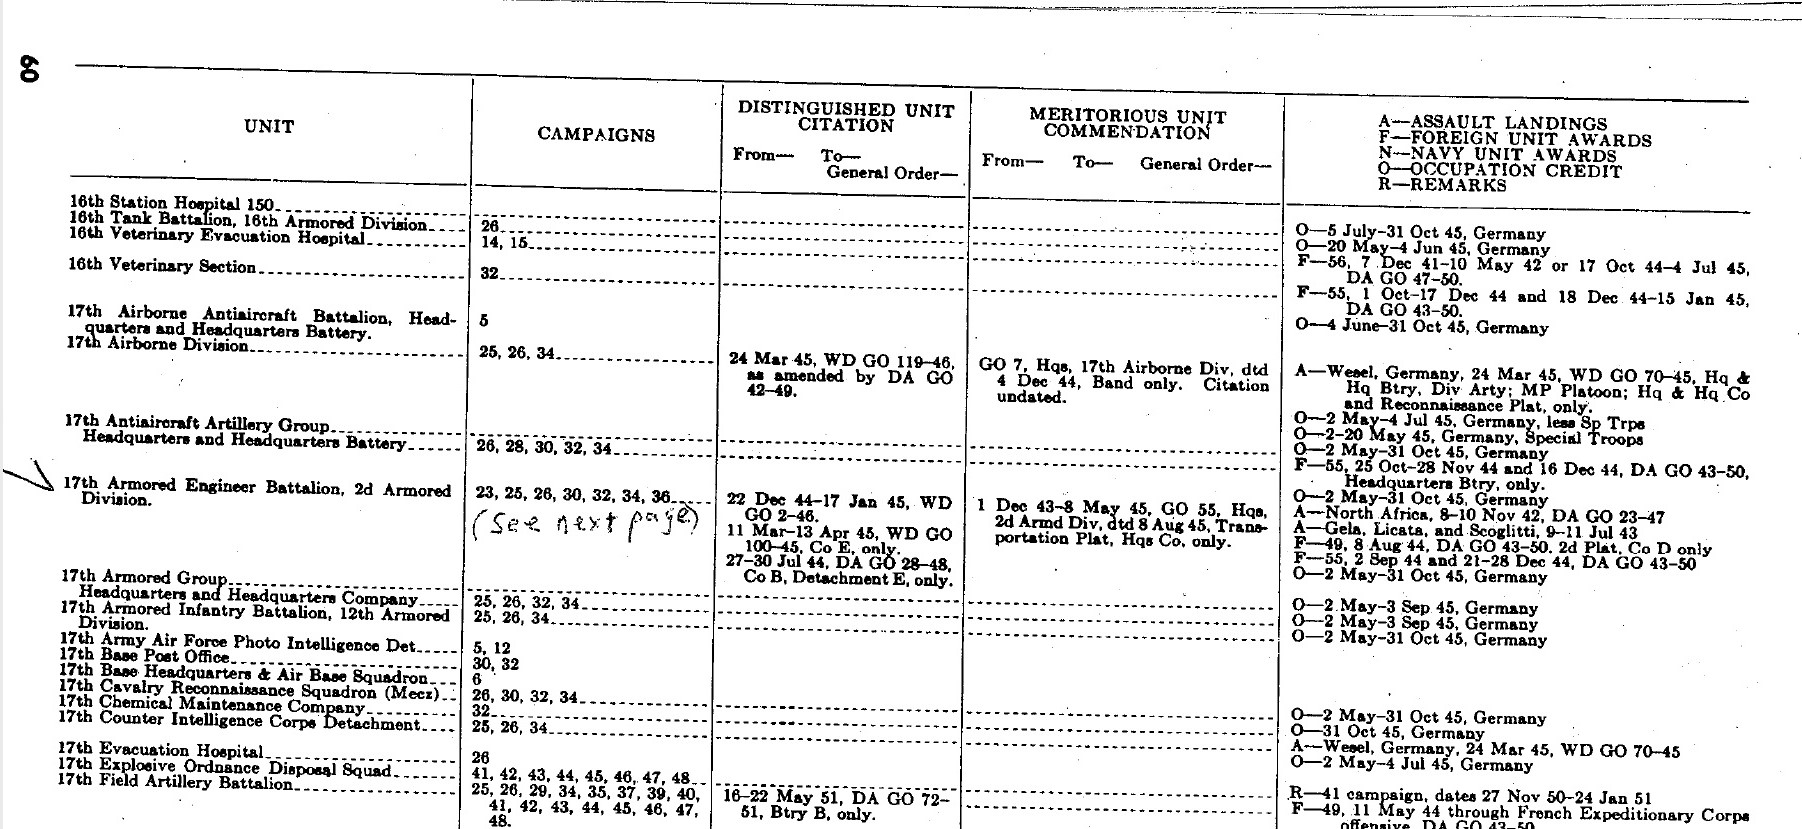 60
UNIT
CAMPAIGNS
DISTINGUISHED UNIT
CITATION
From— To—
General Order—
MERITORIOUS UNIT
COMMENDATION
From— To— General Order—
A—ASSAULT LANDINGS
F—FOREIGN UNIT AWARDS
N—NAVY UNIT AWARDS
O—OCCUPATION CREDIT
R—REMARKS
16th Station Hospital 150
O—5 July–31 Oct 45, Germany
16th Tank Battalion, 16th Armored Division
26
O—20 May–4 Jun 45, Germany
16th Veterinary Evacuation Hospital
14, 15
F—56, 7 Dec 41–10 May 42 or 17 Oct 44–4 Jul 45,
DA GO 47–50.
16th Veterinary Section
32
F—55, 1 Oct–17 Dec 44 and 18 Dec 44–15 Jan 45,
DA GO 43–50.
O—4 June–31 Oct 45, Germany
17th Airborne Antiaircraft Battalion, Head-
quarters and Headquarters Battery.
5
17th Airborne Division
25, 26, 34
24 Mar 45, WD GO 119–46,
as amended by DA GO
42–49.
GO 7, Hqs, 17th Airborne Div, dtd
4 Dec 44, Band only. Citation
undated.
A—Wesel, Germany, 24 Mar 45, WD GO 70–45, Hq &
Hq Btry, Div Arty; MP Platoon; Hq & Hq Co
and Reconnaissance Plat, only.
O—2 May–4 Jul 45, Germany, less Sp Trps
O—2–20 May 45, Germany, Special Troops
17th Antiaircraft Artillery Group
Headquarters and Headquarters Battery
26, 28, 30, 32, 34
O—2 May–31 Oct 45, Germany
F—55, 25 Oct–28 Nov 44 and 16 Dec 44, DA GO 43–50,
Headquarters Btry, only.
O—2 May–31 Oct 45, Germany
17th Armored Engineer Battalion, 2d Armored
Division.
23, 25, 26, 30, 32, 34, 36
(see next page)
22 Dec 44–17 Jan 45, WD
GO 2–46.
11 Mar–13 Apr 45, WD GO
100–45, Co E, only.
27–30 Jul 44, DA GO 28–48,
Co B, Detachment E, only.
1 Dec 43–8 May 45, GO 55, Hqs,
2d Armd Div, dtd 8 Aug 45, Trans-
portation Plat, Hqs Co, only.
A—North Africa, 8–10 Nov 42, DA GO 23–47
A—Gela, Licata, and Scoglitti, 9–11 Jul 43
F—49, 8 Aug 44, DA GO 43–50. 2d Plat, Co D only
F—55, 2 Sep 44 and 21–28 Dec 44, DA GO 43–50
O—2 May–31 Oct 45, Germany
17th Armored Group
Headquarters and Headquarters Company
25, 26, 32, 34
O—2 May–3 Sep 45, Germany
17th Armored Infantry Battalion, 12th Armored
Division.
25, 26, 34
O—2 May–3 Sep 45, Germany
O—2 May–31 Oct 45, Germany
17th Army Air Force Photo Intelligence Det
5, 12
17th Base Post Office
30, 32
17th Base Headquarters & Air Base Squadron
6
17th Cavalry Reconnaissance Squadron (Mecz)
26, 30, 32, 34
O—2 May–31 Oct 45, Germany
17th Chemical Maintenance Company
32
O—31 Oct 45, Germany
17th Counter Intelligence Corps Detachment
25, 26, 34
A—Wesel, Germany, 24 Mar 45, WD GO 70–45
O—2 May–4 Jul 45, Germany
17th Evacuation Hospital
26
17th Explosive Ordnance Disposal Squad
41, 42, 43, 44, 45, 46, 47, 48
R—41 campaign, dates 27 Nov 50–24 Jan 51
17th Field Artillery Battalion
25, 26, 29, 34, 35, 37, 39, 40,
41, 42, 43, 44, 45, 46, 47,
48.
16–22 May 51, DA GO 72–
51, Btry B, only.
F—49, 11 May 44 through French Expeditionary Corps
offensive, DA GO 43–50